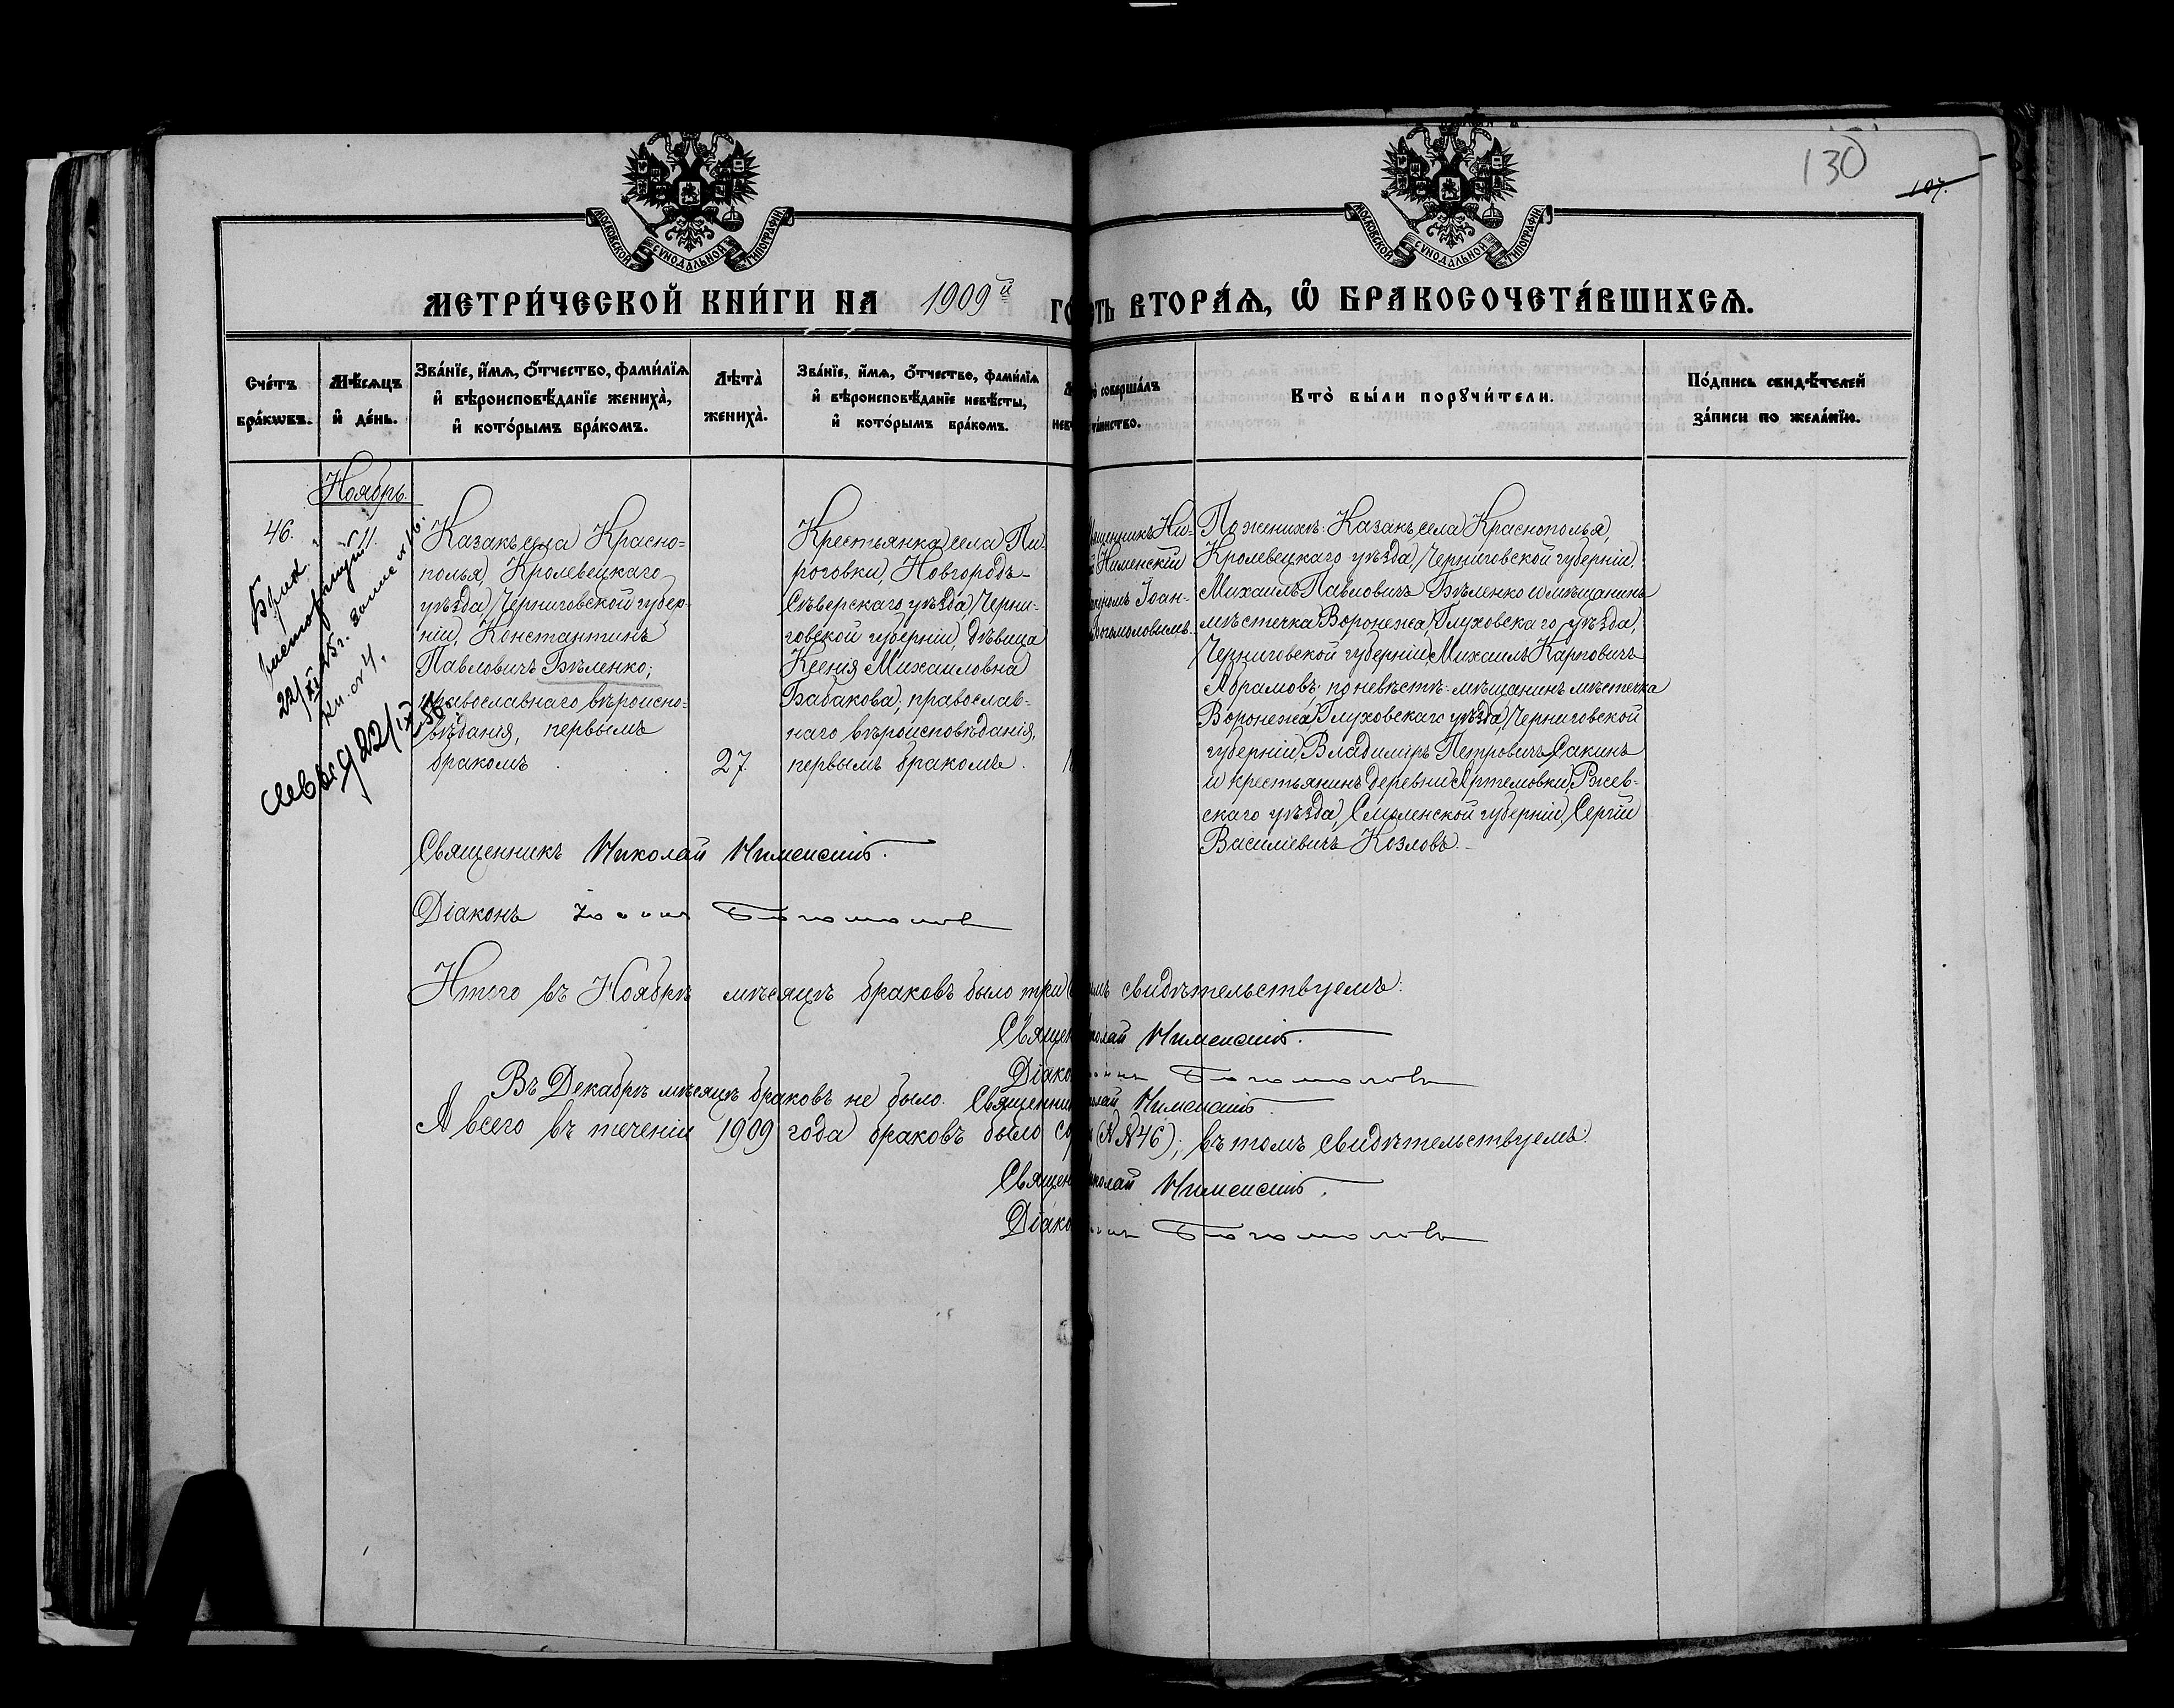 МОСКОВСКОЙ СѴНОДАЛЬНОЙ ТИПОГРАФІИ
МОСКОВСКОЙ СѴНОДАЛЬНОЙ ТИПОГРАФІИ
130
107.
МЕТРИ́ЧЕСКОЙ КНИ́ГИ НА 1909й ГО
ТЬ ВТОРА́Ѧ, Ѡ҆ БРАКОСОЧЕТА́ВШИХСѦ.
Сче́тъ
бра́кѡвъ.
Мѣ́сѧцъ
и҆ де́нь.
Зва́нїе, и҆́мѧ, ѻ҆́тчество, фами́лїѧ
и҆ вѣроисповѣ́данїе жениха̀,
и҆ кото́рымъ бра́комъ.
Лѣта̀
жениха̀.
Зва́нїе, и҆́мѧ, ѻ҆́тчество, фами́лїѧ
и҆ вѣроисповѣ́данїе невѣ́сты,
и҆ кото́рымъ бра́комъ.
совершáлъ
та́инство.
Кто̀ бы́ли порꙋчи́тели.
По́дпись свидѣ́телей
за́писи по жела́нїю.
Ноябрь.
46.
11.
Казакъ села Красно=
полья, Кролевецкаго
уѣзда, Черниговской губер-
ніи, Константинъ
Павловичъ Бѣленко;
православнаго вѣроиспо-
вѣданія, первымъ
бракомъ
27
Крестьянка села Пи-
роговки, Новгородъ-
Сѣверскаго уѣзда, Черни-
говской губерніи, дѣвица
Ксенія Михаиловна
Бабакова; православ-
наго вѣроисповѣданія,
первымъ бракомъ.
Брак
расторгнут
22/XI 45 г. запис № 16.
кн. № 4.
22/IX 56
щенникъ Ни-
Нименскій
кономъ Іоан-
Богомоловымъ.
По женихѣ: Казакъ села Краснополья,
Кролевецкаго уѣзда, Черниговской губерніи,
Михаилъ Павловичъ Бѣленко и мѣщанинъ
мѣстечка Воронежа, Глуховскаго уѣзда,
Черниговской губерніи, Михаилъ Карповичъ
Абрамовъ; по невѣстѣ: мѣщанинъ мѣстечка
Воронежа, Глуховскаго уѣзда, Черниговской
губерніи, Владиміръ Петровичъ Сакинъ
и крестьянинъ деревни Артемовки, Ржев-
скаго уѣзда, Смоленской губерніи, Сергій
Василіевичъ Козловъ.
Священникъ Николай Нименскій.
Діаконъ Іоаннъ Богомоловъ
Итого въ Ноябрѣ мѣсяцѣ браковъ было три
омъ свидѣтельствуемъ:
Священ
колай Нименскій.
Діако
Богомоловъ
Въ Декабрѣ мѣсяцѣ браковъ не было. Священни
колай Нименскій.
А всего въ теченіи 1909 года браковъ было со
(№ 46); въ томъ свидѣтельствуемъ:
Священ
колай Нименскій.
Діако
Богомоловъ